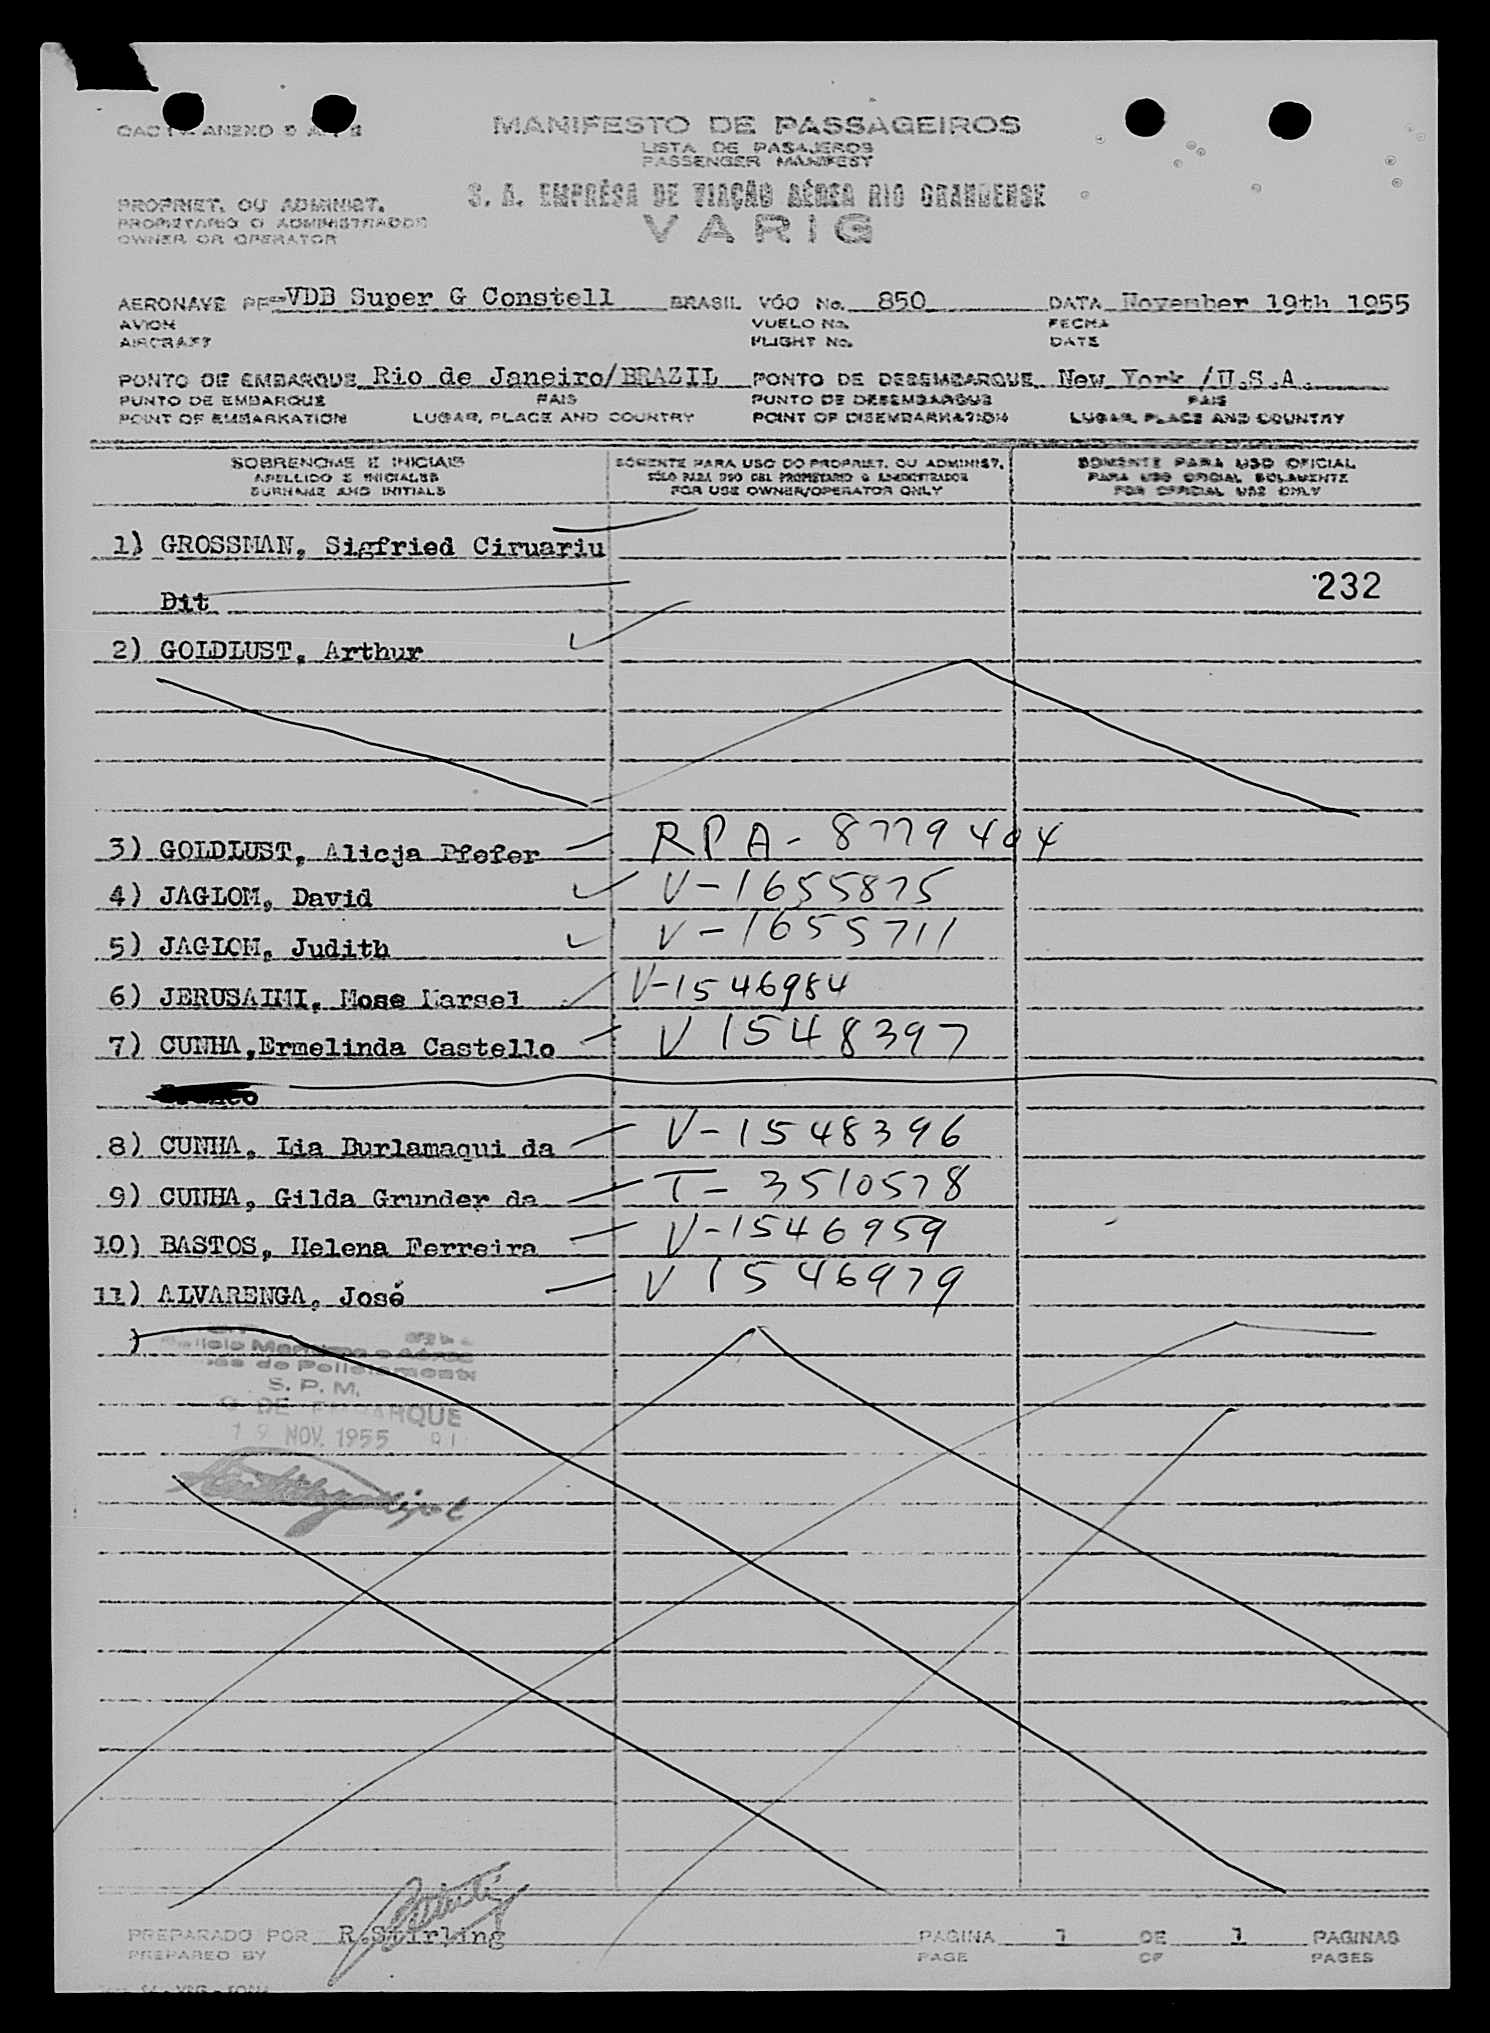 MANIFESTO DE PASSAGEIROS
LISTA DE PASAJEROS
PASSENGER MANIFEST
PROPRIET. OU ADMINIST.
PROPIETARIO O ADMINISTRADOR
OWNER OR OPERATOR
S. A. EMPRÊSA DE VIAÇÃO AÉREA RIO GRANDENSE
VARIG
AERONAVE PP-VDB Super G Constell BRASIL VÔO No. 850 DATA November 19th 1955
AVION VUELO No. FECHA
AIRCRAFT FLIGHT No. DATE
PONTO DE EMBARQUE Rio de Janeiro/BRAZIL PONTO DE DESEMBARQUE New York /U.S.A.
PUNTO DE EMBARQUE PAIS PUNTO DE DESEMBARQUE PAIS
POINT OF EMBARKATION LUGAR, PLACE AND COUNTRY POINT OF DISEMBARKATION LUGAR, PLACE AND COUNTRY
SOBRENOME E INICIAIS SOMENTE PARA USO DO PROPRIET. OU ADMINIST. SOMENTE PARA USO OFICIAL
APELLIDO E INICIALES SÓLO PARA USO DEL PROPIETARIO O ADMINISTRADOR PARA USO OFICIAL SOLAMENTE
SURNAME AND INITIALS FOR USE OWNER/OPERATOR ONLY FOR OFFICIAL USE ONLY
1) GROSSMAN, Sigfried Ciruariu
Dit 232
2) GOLDLUST, Arthur
3) GOLDLUST, Alicja Pfefer RPA-8779404
4) JAGLOM, David V-1655875
5) JAGLOM, Judith V-1655711
6) JERUSALMI, Mose Marsel V-1546984
7) CUNHA,Ermelinda Castello V 1548397
8) CUNHA, Lia Burlamaqui da V-1548396
9) CUNHA, Gilda Grunder da T-3510578
10) BASTOS, Helena Ferreira V-1546959
11) ALVARENGA, José V 1546979
)
S. P. M.
DE EMBARQUE
19 NOV. 1955
PREPARADO POR R.Stirling PAGINA 1 DE 1 PAGINAS
PREPARED BY PAGE OF PAGES